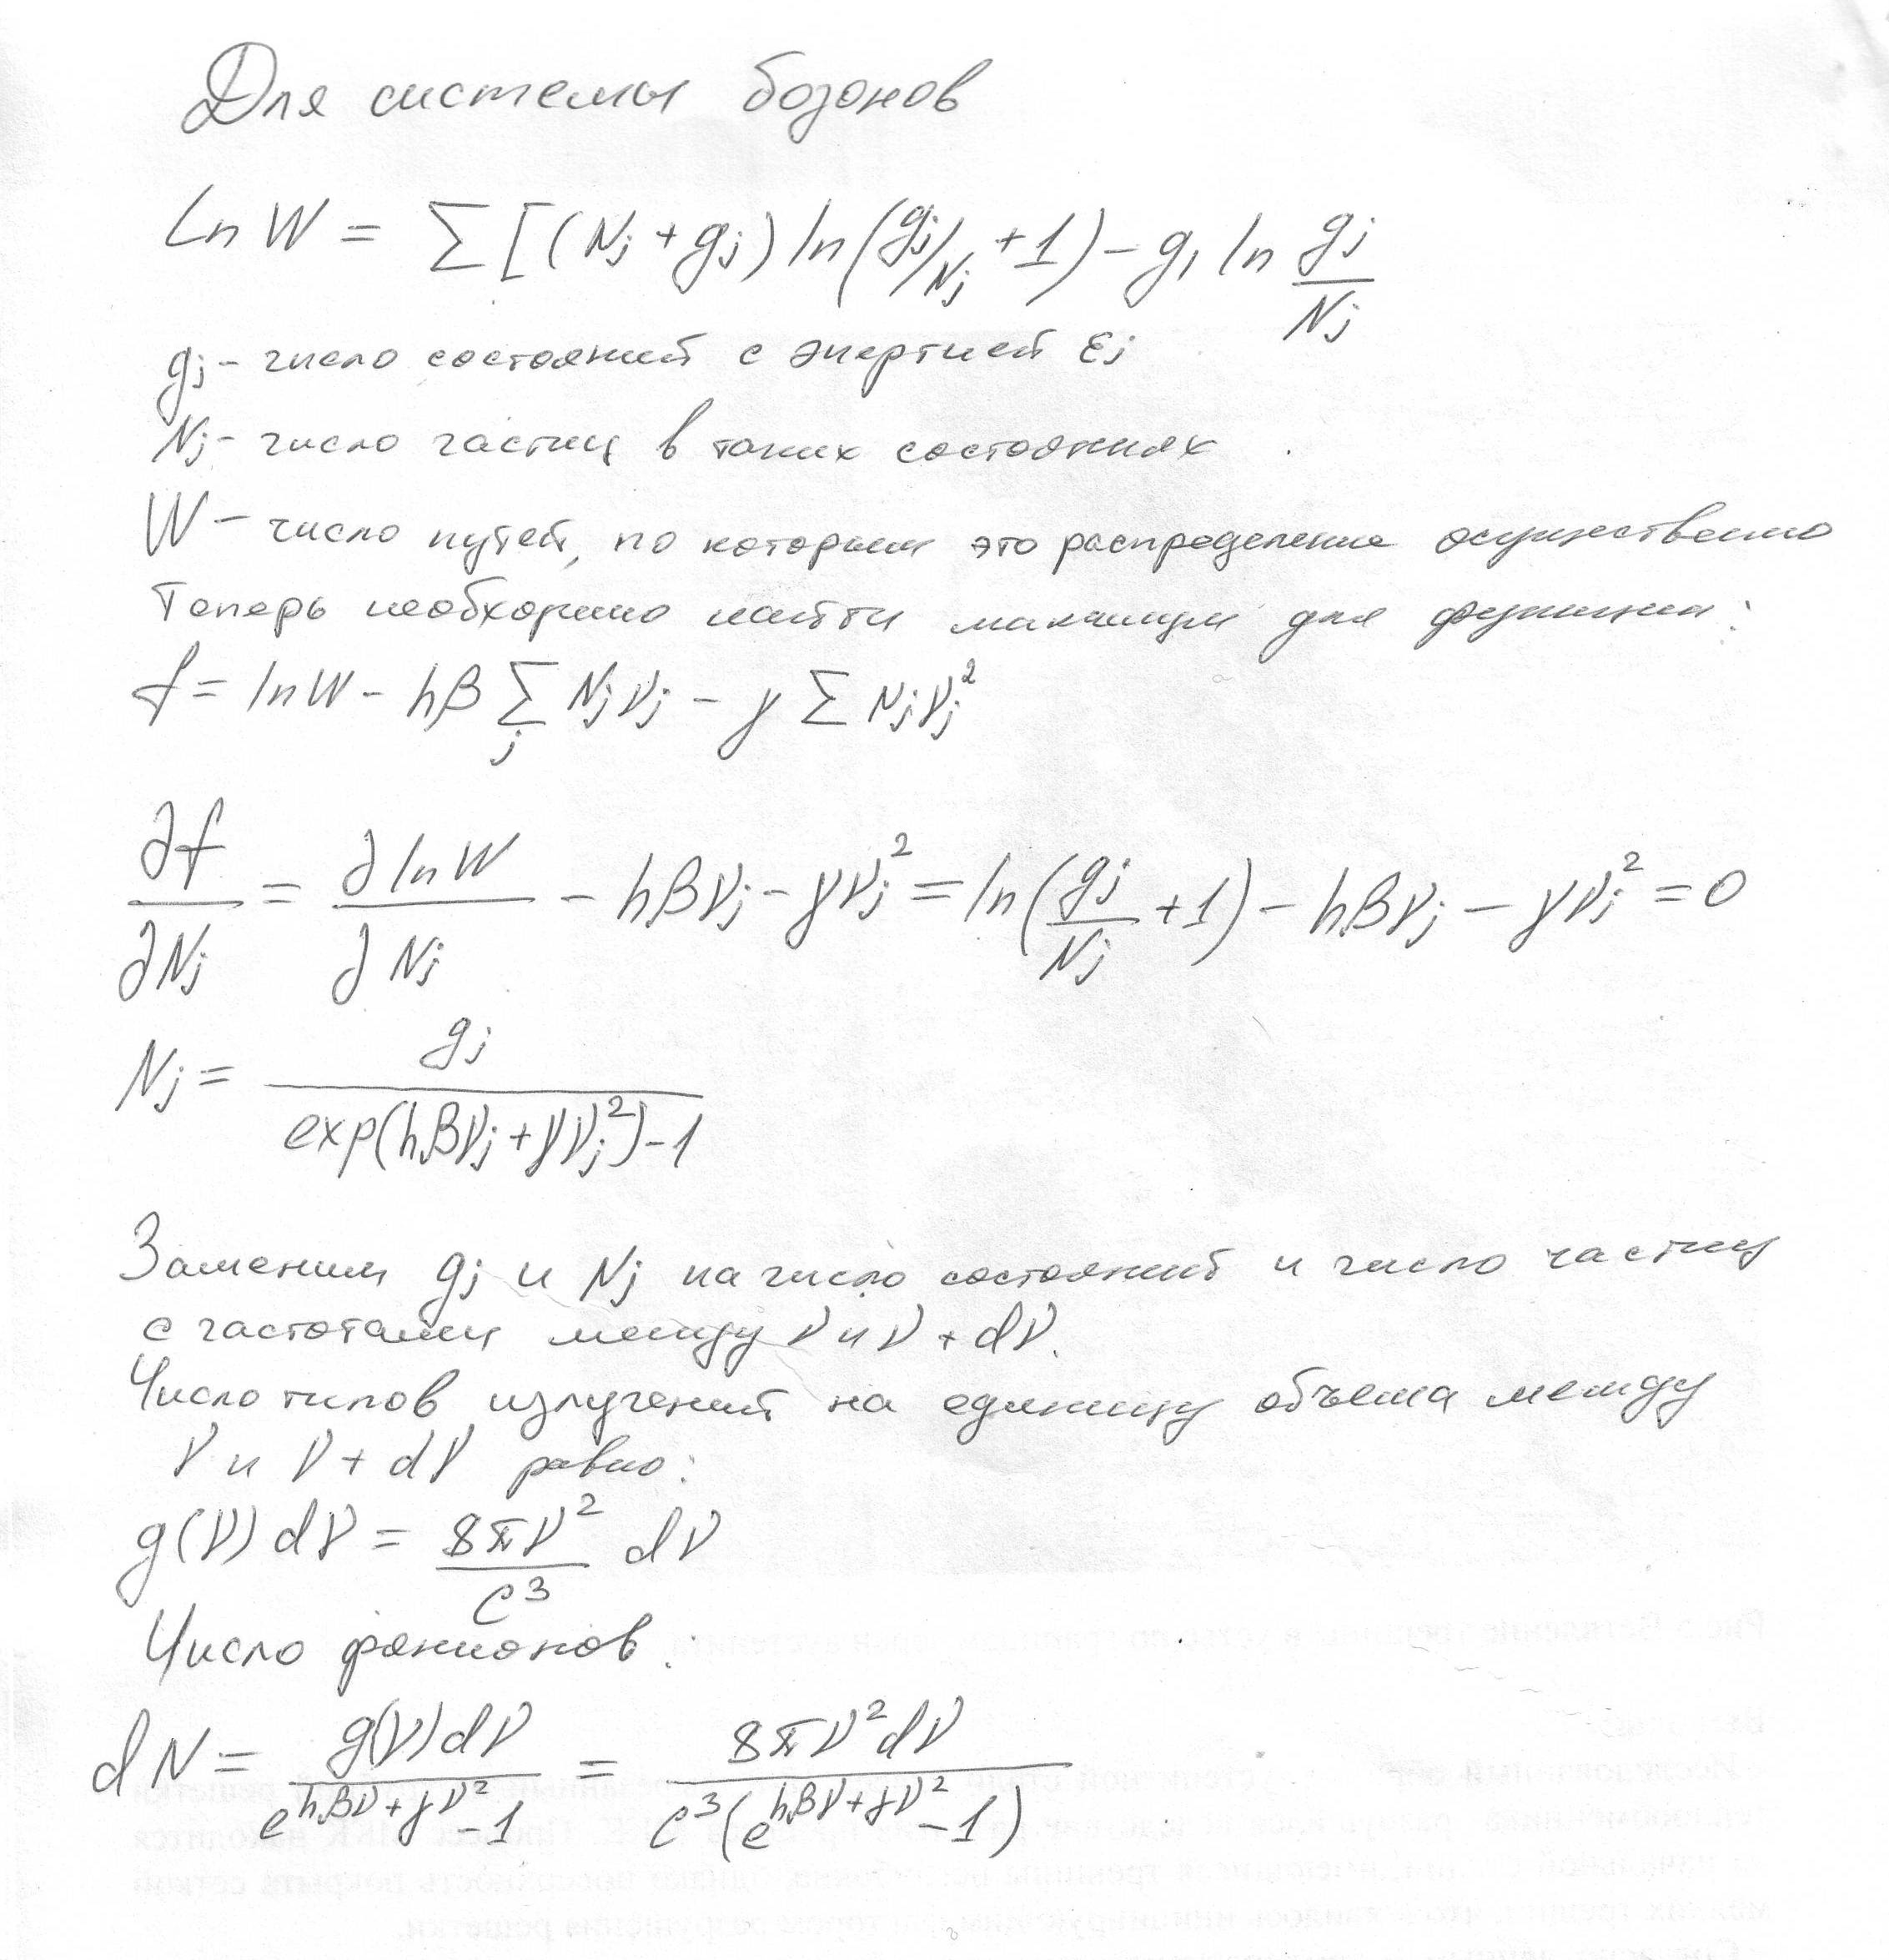 Для системы бозонов
ln W = Σ [(Nj + gj) ln(gj/Nj + 1) - g, ln gj/Nj
gj - число состояний с энергией εj
Nj - число частиц в таких состояниях.
W - число путей, по которым это распределение осуществимо
Теперь необходимо найти максимум для функции:
f = lnW - hβ Σj Njνj - γ Σ Njνj²
∂f/∂Nj = ∂lnW/∂Nj - hβνj - γνj² = ln(gj/Nj + 1) - hβνj - γνj² = 0
Nj = gj/(exp(hβνj + γνj²) - 1)
Заменим gj и Nj на число состояний и число частиц
с частотами между ν и ν + dν.
Число типов излучений на единицу объема между
ν и ν + dν равно:
g(ν) dν = 8πν²/c³ dν
Число:
dN = g(ν)dν/(e^(hβν+γν²) - 1) = 8πν²dν/(c³(e^(hβν+γν²) - 1))